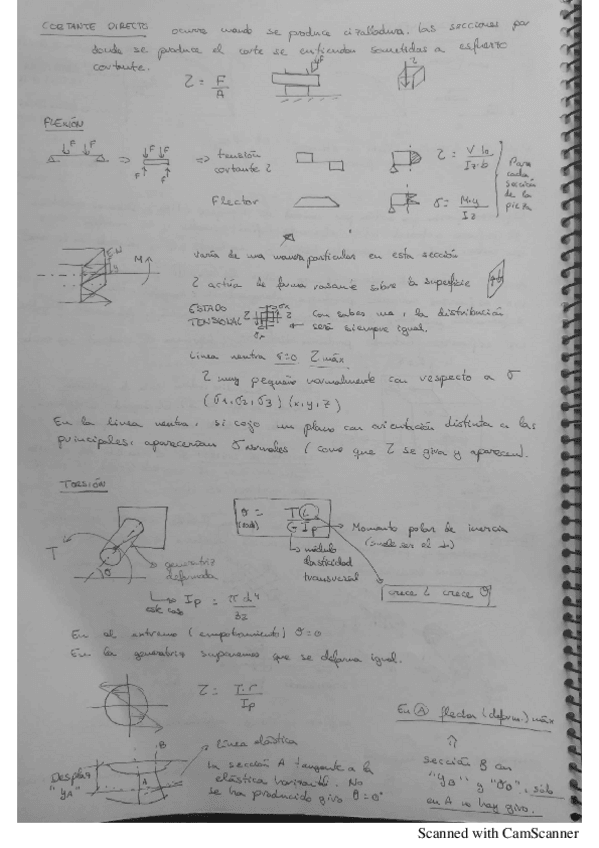 CORTANTE DIRECTO ocurre cuando se produce cizalladura. Las secciones por
donde se produce el corte se entienden sometidas a esfuerzo
cortante.
τ = F/A
F
τ
FLEXIÓN
F F ⇒ F F ⇒ tensión cortante τ
τ = /Iz·b
Flector
σ = M·y/Iz
Para cada sección de la pieza
M
varía de una manera particular en esta sección
τ actúa de forma rasante sobre la superficie
ESTADO TENSIONAL τ τ con saber una, la distribución
será siempre igual.
Línea neutra σ=0 τ máx
τ muy pequeño normalmente con respecto a σ
(σ1, σ2, σ3) (x, y, z)
En la línea neutra, si cojo un plano con orientación distinta a las
principales, aparecerían σ normales (como que τ se gira y aparecen).
TORSIÓN
T
θ
generatriz deformada
θ = (rad) T L / G Ip → Momento polar de inercia
módulo elasticidad transversal
crece L crece θ
este caso Ip = π d⁴/32
En el extremo (empotramiento) θ=0
En la generatriz suponemos que se deforma igual.
τ = T·r/Ip
En A flector (deform.) máx
B
línea elástica
Desplaz "yA"
A
La sección A tangente a la
elástica horizontal. No
se ha producido giro θ=0°
sección B con
"yB" y "θB", sólo
en A no hay giro.
Scanned with CamScanner